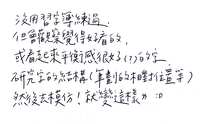 沒用習字簿練過，
但會觀察覺得好看的，
或看起來平衡感很好(?)的字
研究字的結構(筆劃的相對位置等)
然後去模仿！就變這樣 :D